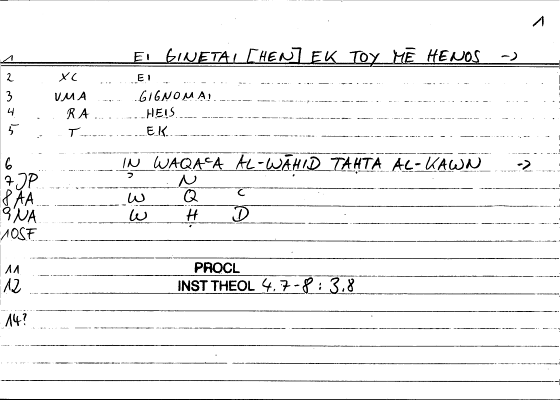 1
1 EI GINETAI [HEN] EK TOY MĒ HENOS ->
2 XC EI
3 VMA GIGNOMAI
4 RA HEIS
5 T EK
6 IN WAQAʿA AL-WĀḤID TAḤTA AL-KAWN ->
7 JP ʾ N
8 AA W Q ʿ
9 NA W Ḥ D
10 SF
11 PROCL
12 INST THEOL 4.7-8 : 3.8
14?